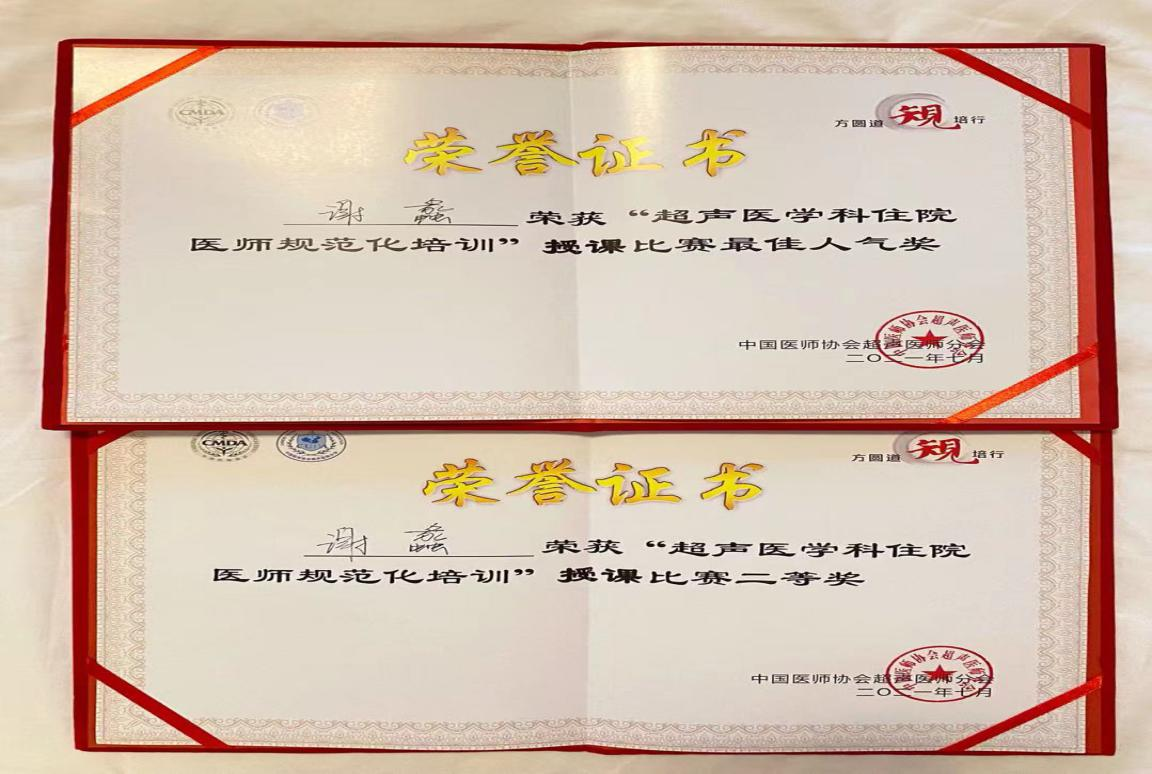 CMDA
方圆道 规 培行
荣誉证书
谢 荣获“超声医学科住院
医师规范化培训”授课比赛最佳人气奖
中国医师协会超声医师分会
二〇二一年七月
中国医师协会超声医师分会
CMDA
方圆道 规 培行
荣誉证书
谢 荣获“超声医学科住院
医师规范化培训”授课比赛二等奖
中国医师协会超声医师分会
二〇二一年七月
中国医师协会超声医师分会